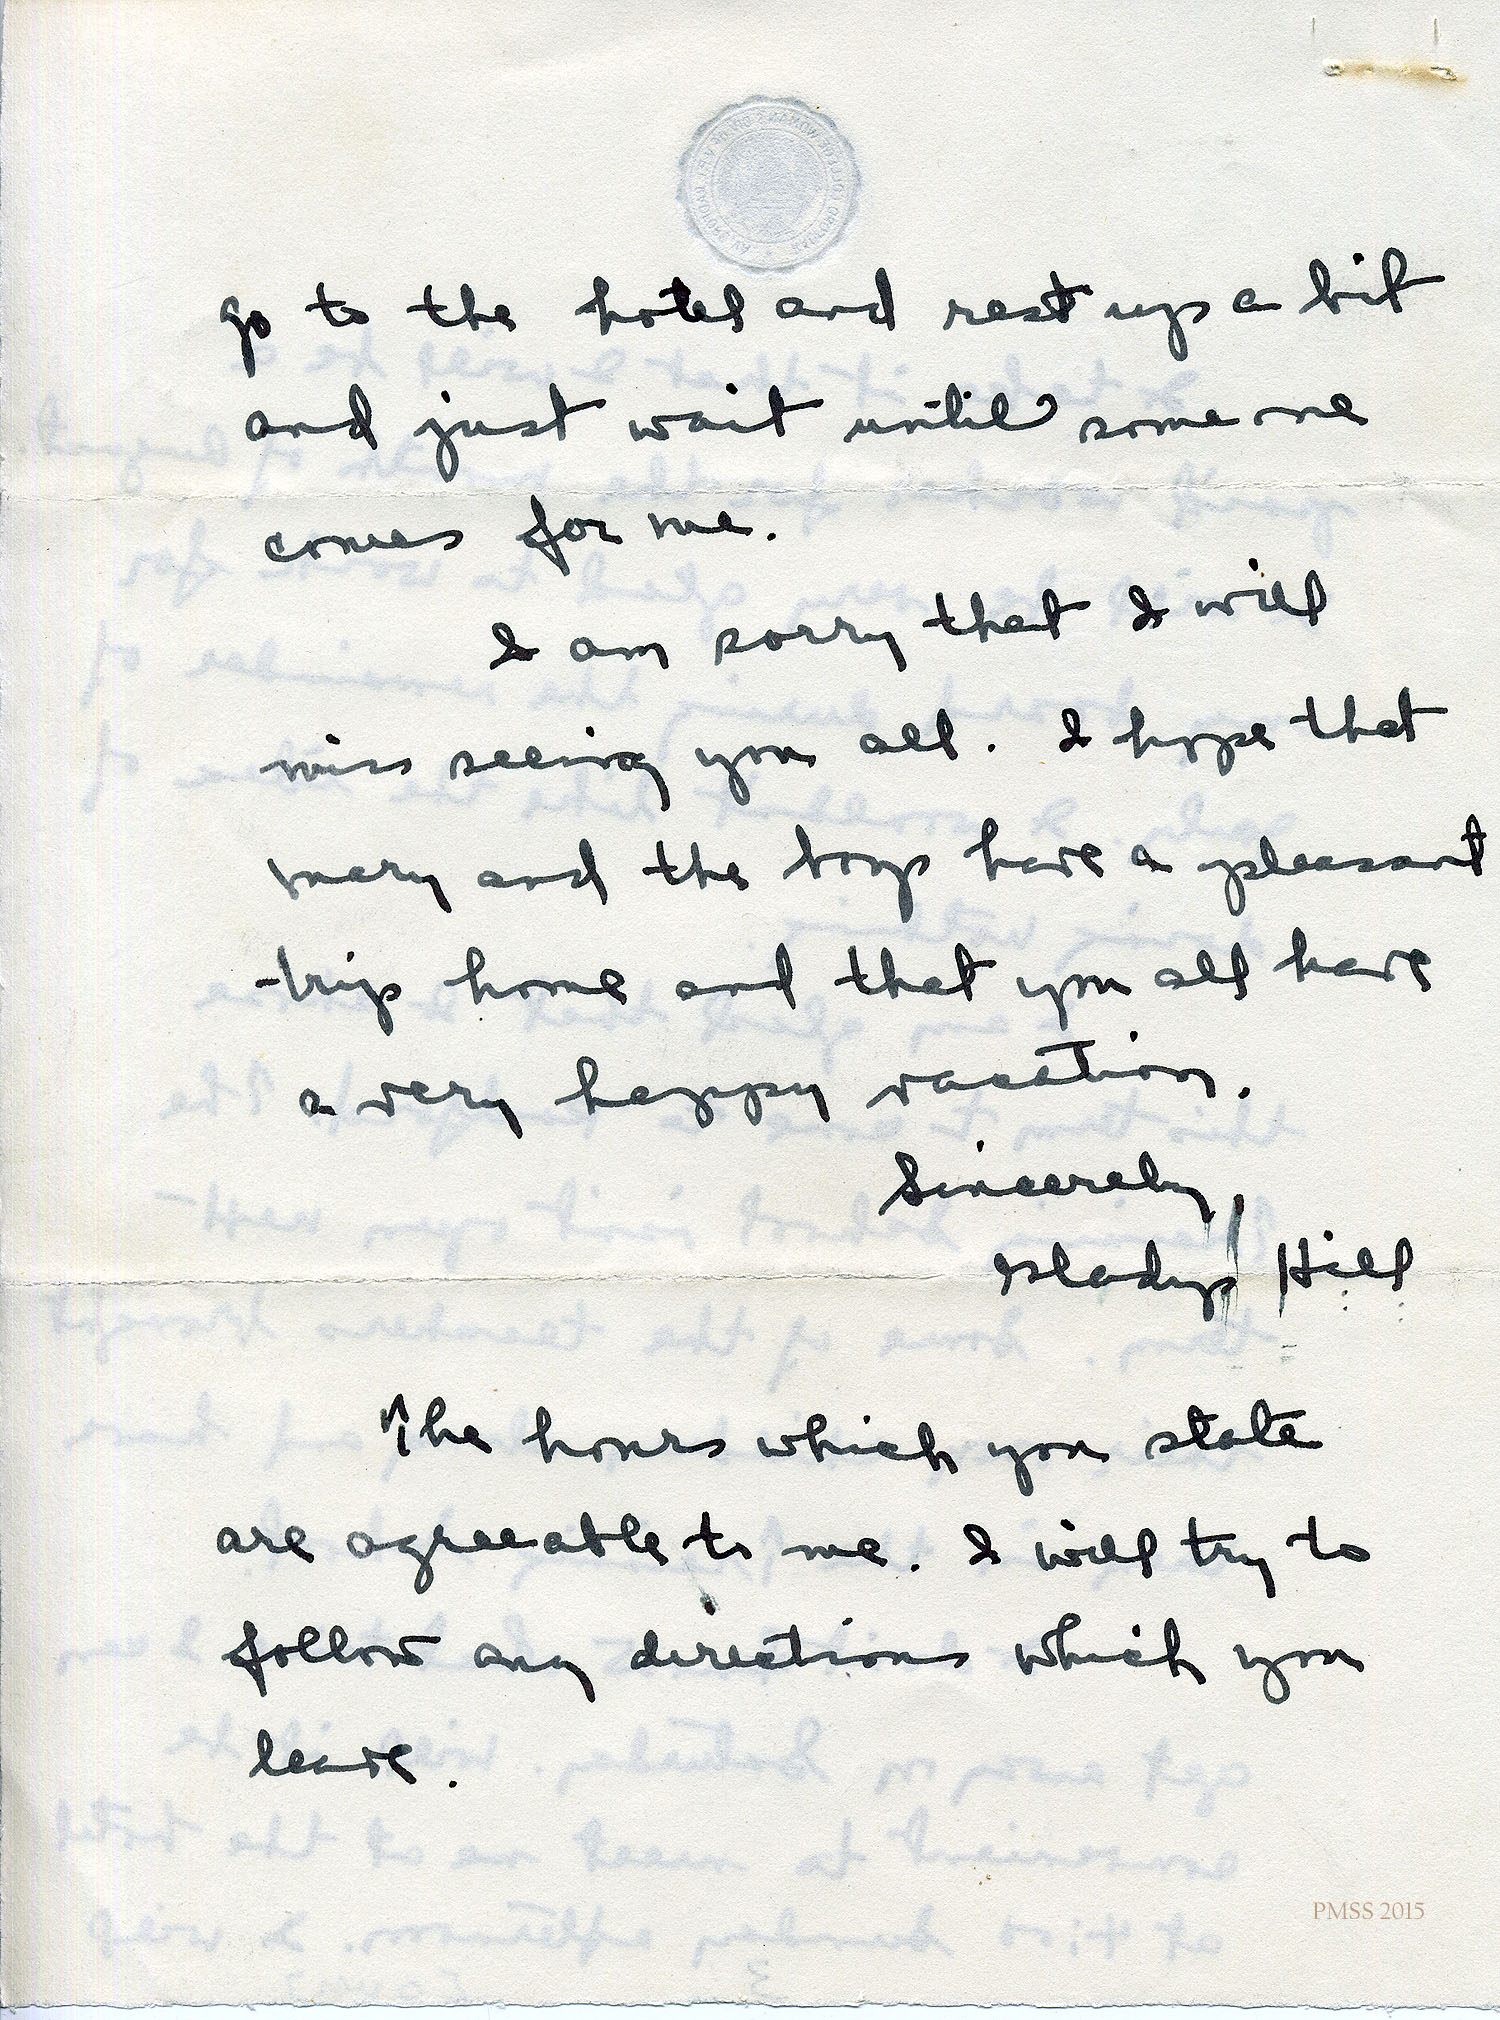 go to the hotel and rest up a bit
and just wait until someone
comes for me.
I am sorry that I will
miss seeing you all. I hope that
Mary and the boys have a pleasant
trip home and that you all have
a very happy vacation.
Sincerely,
Gladys Hill
The hours which you state
are agreeable to me. I will try to
follow any directions which you
leave.
PMSS 2015